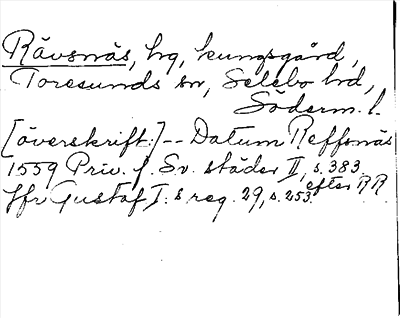 Rävsnäs, hg, kungsgård,
Toresunds sn, Selebo hd,
Söderm. l.
[överskrift:] -- Datum Reffsnäs
1559 Priv. f. Sv. städer II, s. 383
efter RR
Jfr Gustaf I:s reg. 29, s. 253.